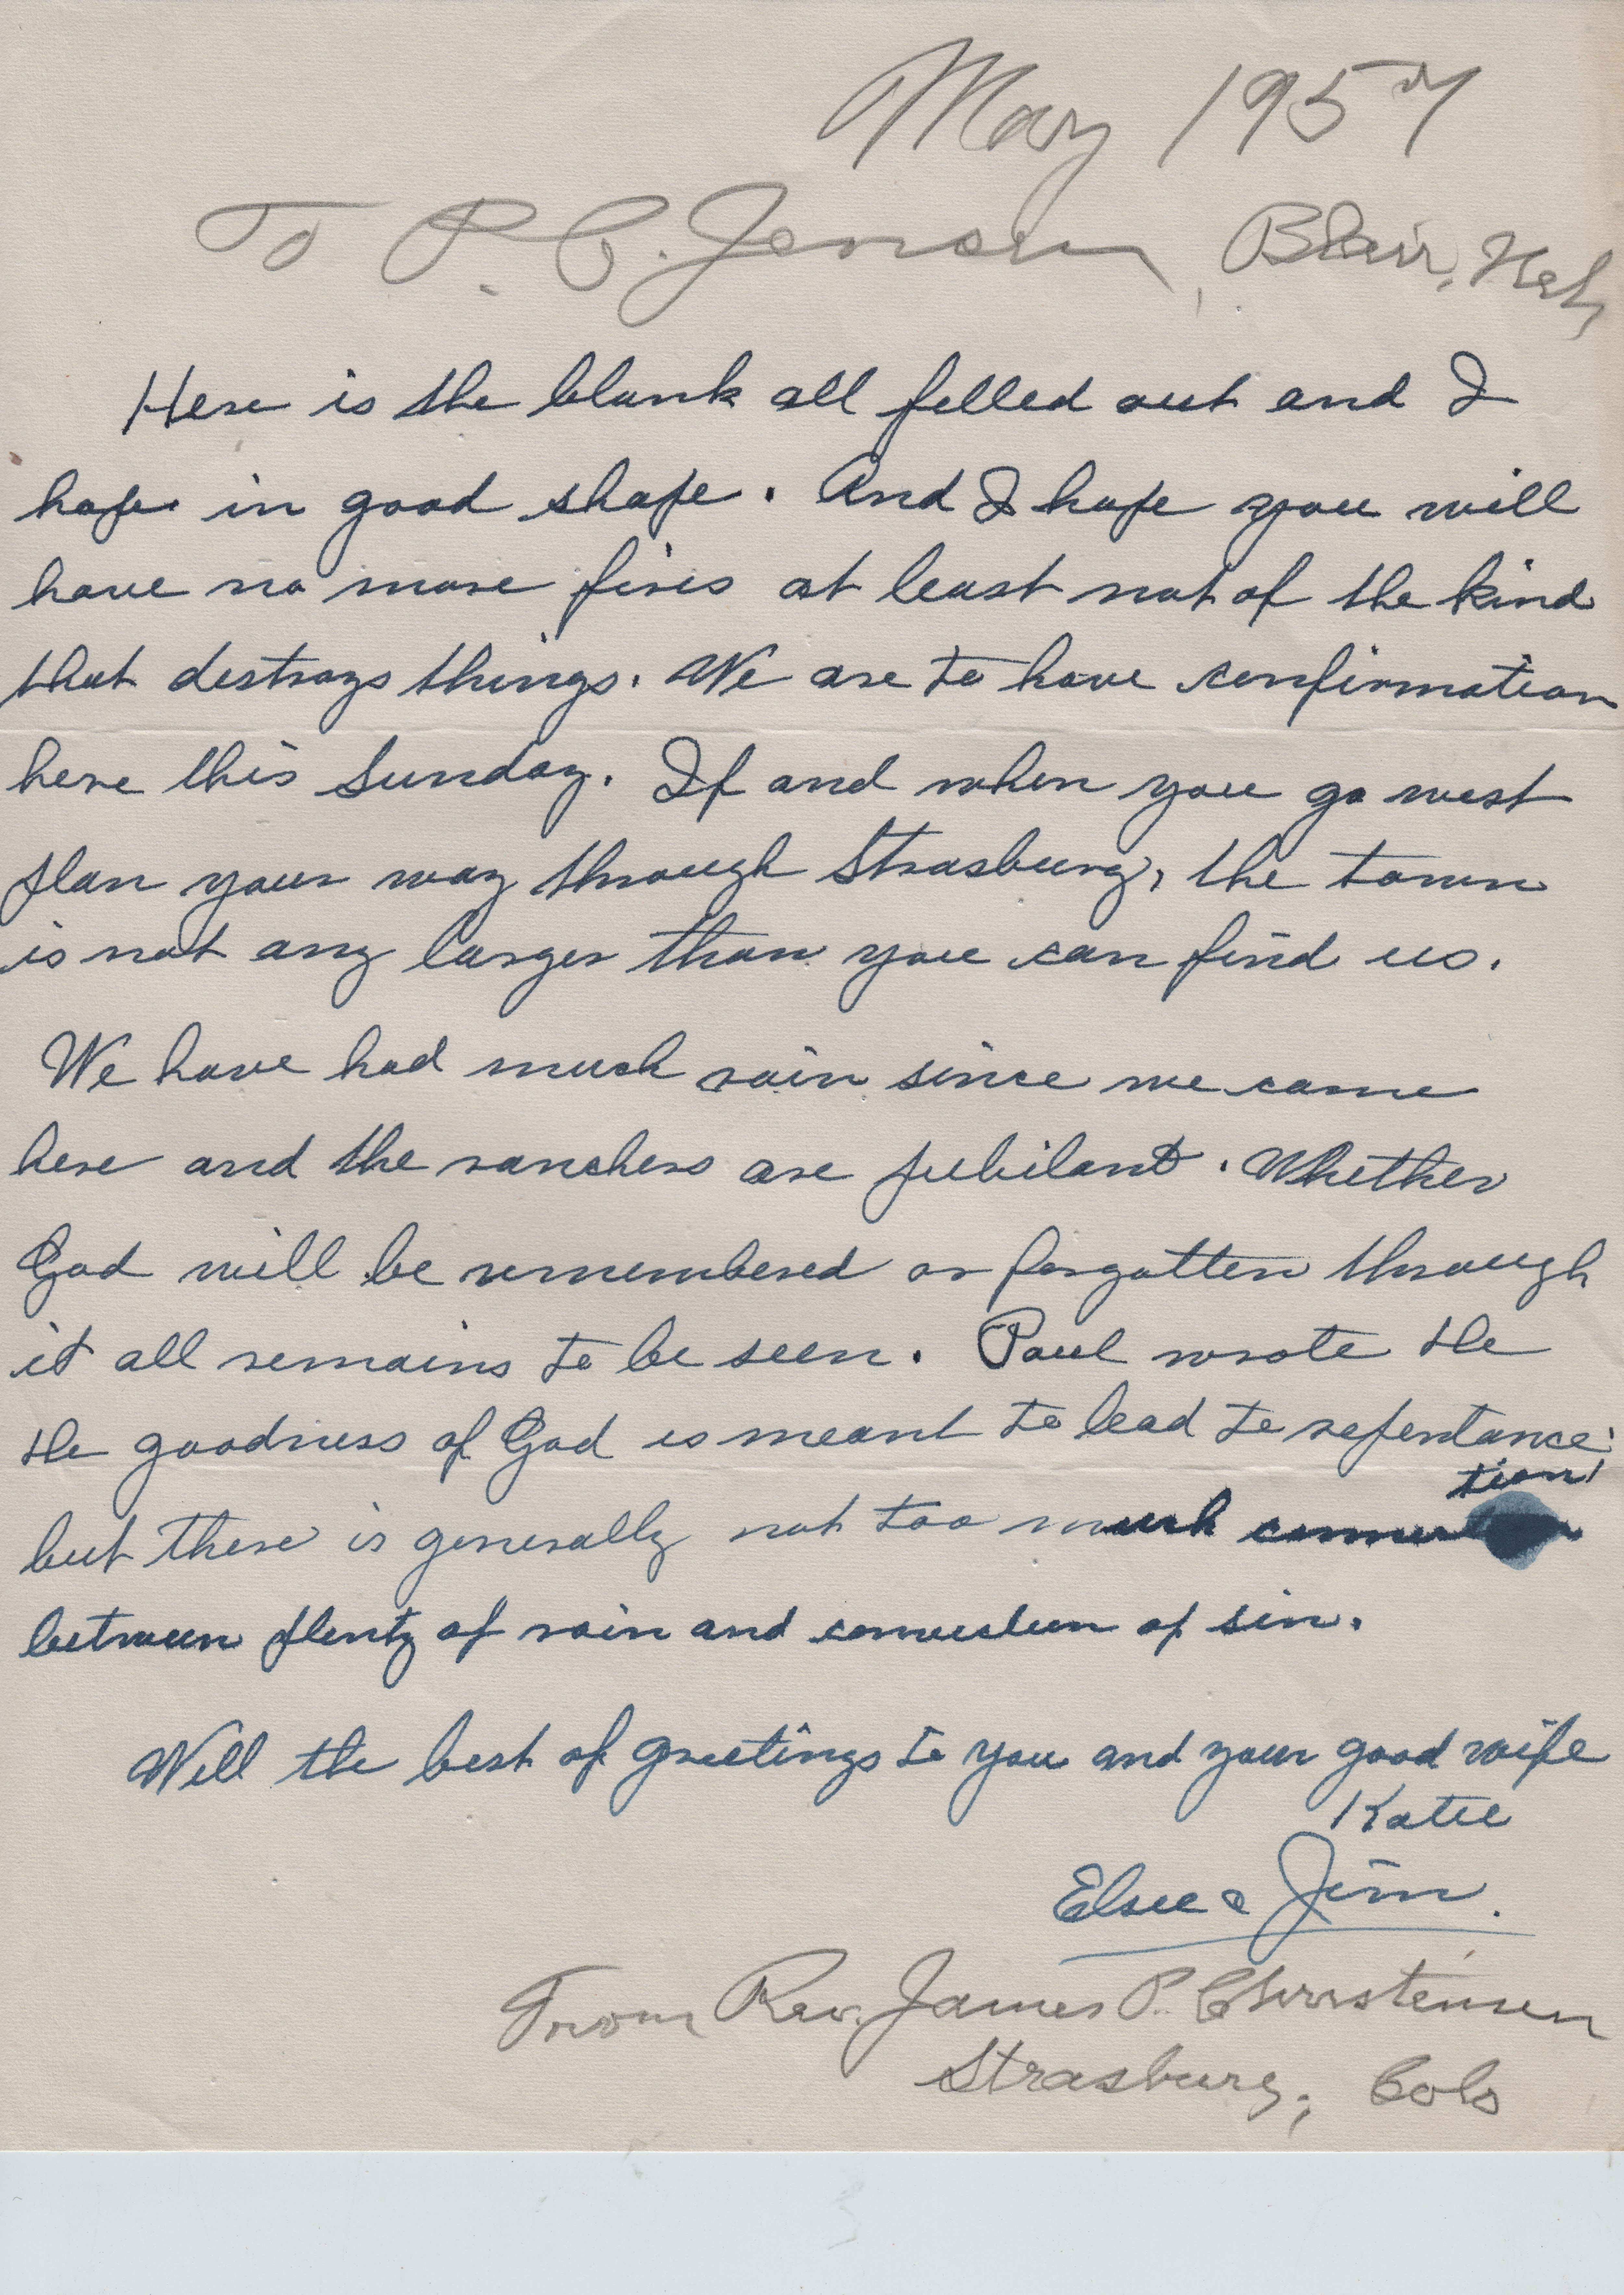 May 1957
To P. C. Jensen, Blair, Neb,
Here is the blank all filled out and I
hope in good shape. And I hope you will
have no more fires at least not of the kind
that destroys things. We are to have confirmation
here this Sunday. If and when you go west
plan your way through Strasburg, the town
is not any larger than you can find us.
We have had much rain since we came
here and the ranchers are jubilant. Whether
God will be remembered or forgotten through
it all remains to be seen. Paul wrote the
the goodness of God is meant to lead to repentance:
tion,
but there is generally not too much
between plenty of rain and conviction of sin.
Will the best of greetings to you and your good wife
Katie
Elsie & Jim.
From Rev. James P. Christensen
Strasburg, Colo